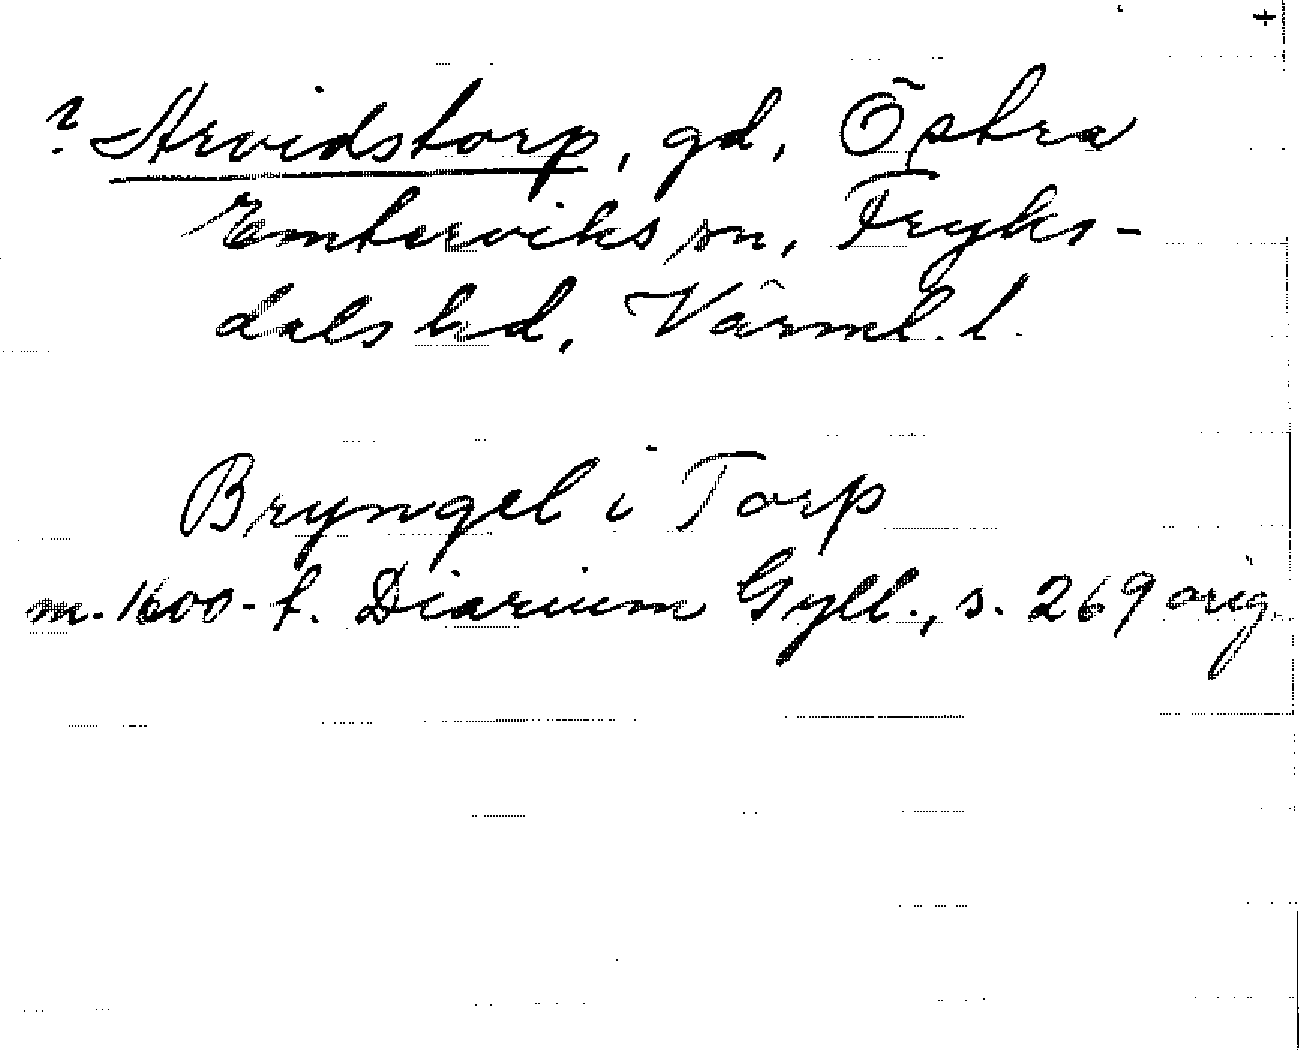 +
? Arvidstorp, gd, Östra
Emterviks sn, Fryks-
dals hd, Värml. l.
Bryngel i Torp
m. 1600-t. Diarium Gyll., s. 269 orig.